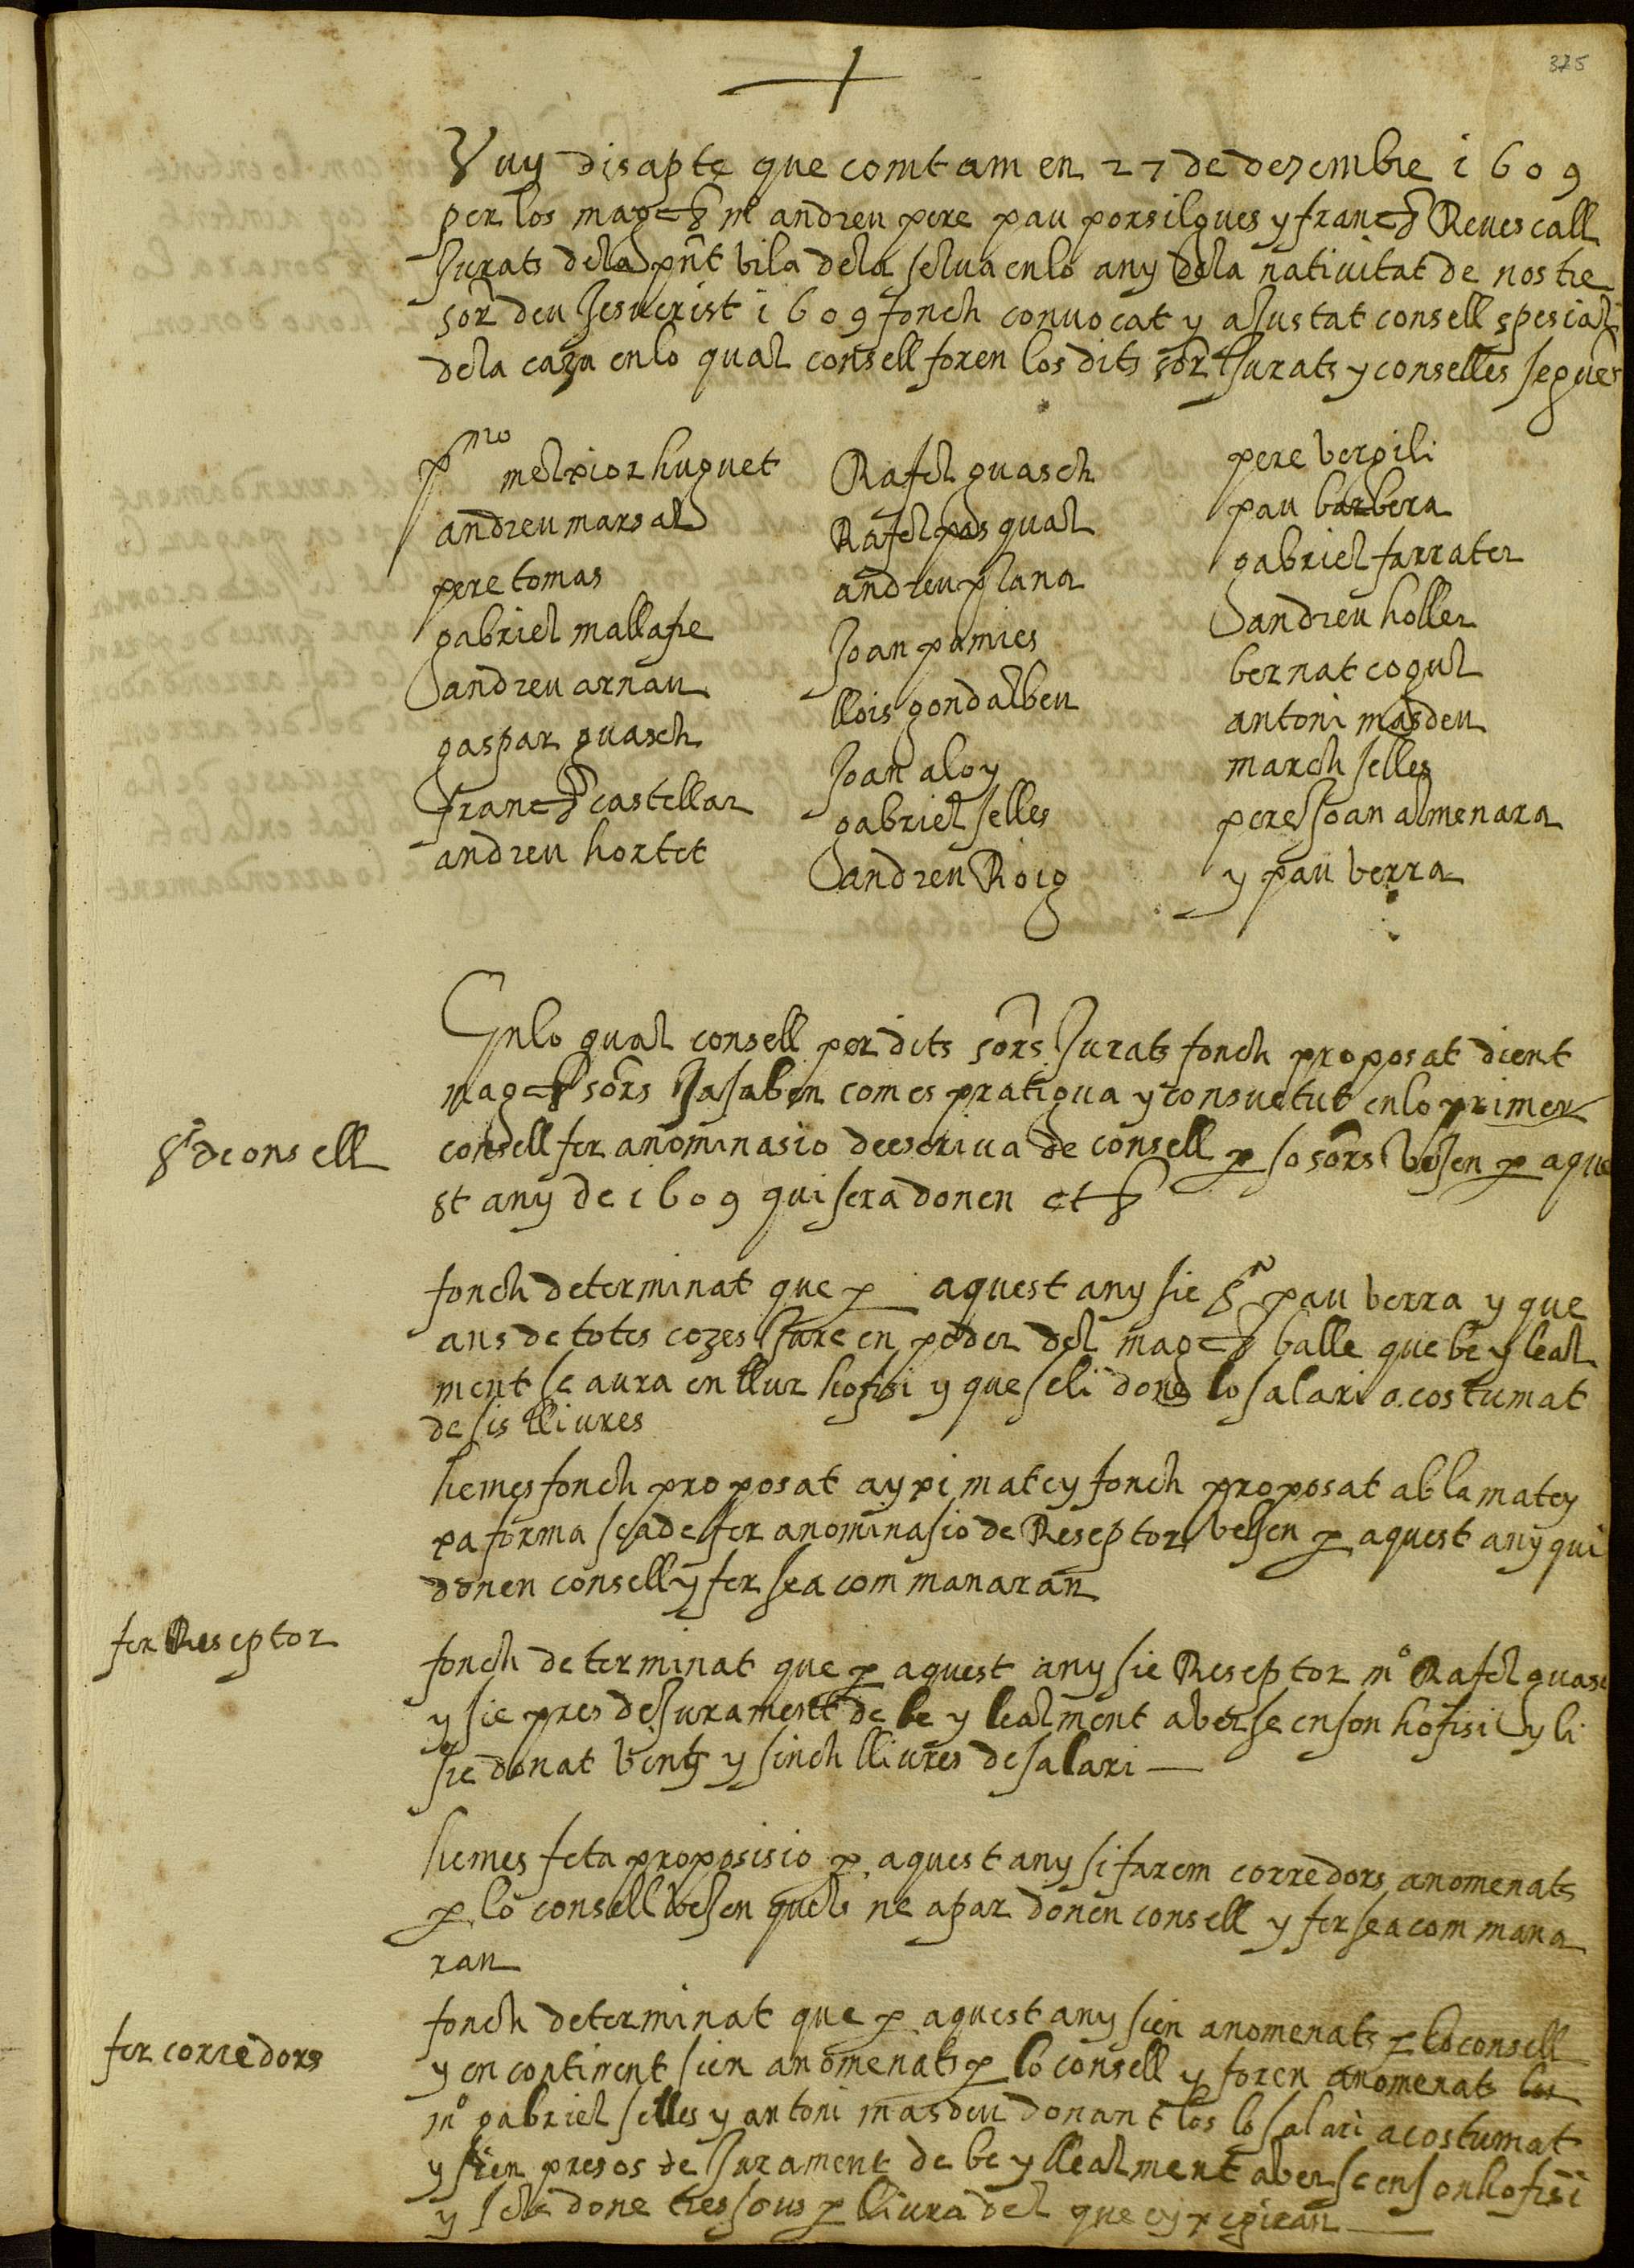 375
Vuy disapte que comtam en 27 de dezembre 1609
per los magchs mº andreu pere pau porsilgues y franch Reuescall
Jurats dela pnt vila dela selua en lo any dela natiuitat de nostre
sor deu Jesucrist 1609 fonch conuocat y aJustat consell spesial
dela caza en lo qual consell foren los dits sors Jurats y conselles seguens
pmo melxior huguet
andreu marsal
pere tomas
gabriel mallafre
andreu arnau
gaspar guasch
franch castellar
andreu hortet
Rafel guasch
Rafel pasqual
andreu plana
Joan pamies
llois gondalbeu
Joan aloy
gabriel selles
andreu Roig
pere bergili
pau barbera
gabriel farrater
andreu holler
bernat cogul
antoni masdeu
march selles
pere Joan almenara
y pau berra
En lo qual consell per dits sors Jurats fonch proposat dient
magchs sors Ja saben com es pratigua y consuetut en lo primer
consell fer anominasio de escriua de consell p so sors veJen p aque
st any de 1609 qui sera donen etc
sa de consell
fonch determinat que p aquest any sie sa pau berra y que
ans de totes cozes Jure en poder del magch balle que be y leal
ment se aura en llur hofisi y que seli done lo salari acostumat
de sis lliures
hemes fonch proposat ayxi matey fonch proposat ab la matey
xa forma sea de fer anominasio de Reseptor veJen p aquest any qui
donen consell y fer sea com manaran
fer Reseptor
fonch determinat que p aquest any sie Reseptor mº Rafel guasc
y sie pres de Jurament de be y lealment aberse en son hofisi y li
sie donat vint y sinch lliures de salari
hemes feta proposisio p aquest any si farem corredors anomenats
p lo consell veJen quels ne apar donen consell y fer sea com mana
ran
fer corredors
fonch determinat que p aquest any sien anomenats p lo consell
y en continent sien anomenats p lo consell y foren anomenats
mº gabriel selles y antoni masdeu donant los lo salari acostumat
y sien presos de Jurament de be y llealment aberse en son hofisi
y sels done tres sous p lliura del que